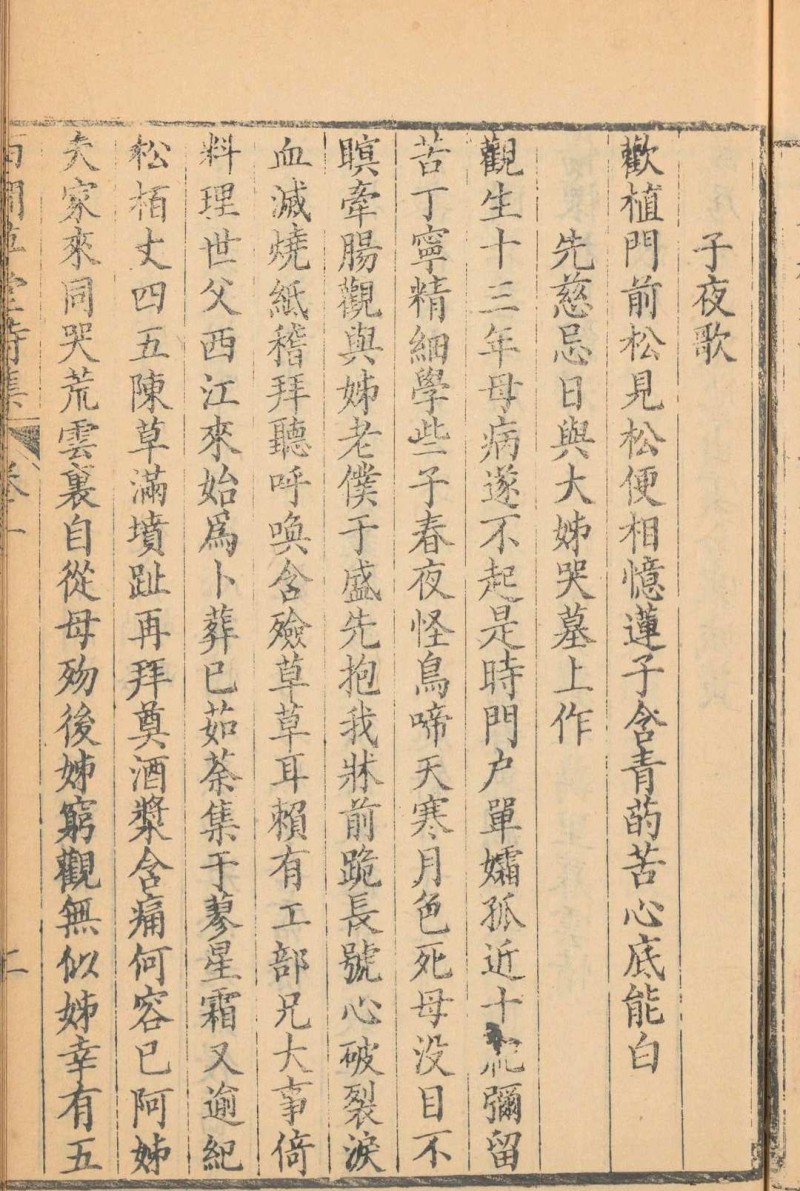 子夜歌
歡植門前松見松便相憶蓮子含青菂苦心底能白
先慈忌日與大姊哭墓上作
觀生十三年母病遂不起是時門户單孀孤近十祀彌留
苦丁寧精細學些子春夜怪鳥啼天寒月色死母没目不
瞑牽腸觀與姊老僕于盛先抱我牀前跪長號心破裂淚
血減燒紙稽拜聽呼喚含殮草草耳賴有工部兄大事倚
料理世父西江來始爲卜葬已茹荼集于蓼星霜又逾紀
松栢丈四五陳草滿墳趾再拜奠酒漿含痛何容已阿姊
夫家來同哭荒雲裏自從母殁後姊窮觀無似姊幸有五
草堂詩集 卷一
二